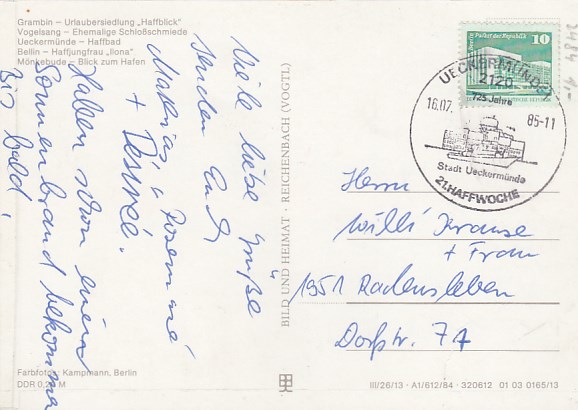 Grambin – Urlaubersiedlung „Haffblick"
Vogelsang – Ehemalige Schloßschmiede
Ueckermünde – Haffbad
Bellin – Haffjungfrau „Ilona"
Mönkebude – Blick zum Hafen
Viele liebe Grüße
senden Euch
Mathias, Rosemarie
+ Desirée.
Haben schon einen
Sonnenbrand bekommen
Bis bald!
Farbfotos: Kampmann, Berlin
DDR 0,20 M
BILD UND HEIMAT · REICHENBACH (VOGTL)
Berlin, Palast der Republik
10
UECKERMÜNDE
2120
725 Jahre
16.07. 85-11
Stadt Ueckermünde
21. HAFFWOCHE
Herrn
Willi Krause
+ Frau
1951 Radensleben
Dorfstr. 71
III/26/13 · A1/612/84 · 320612 01 03 0165/13